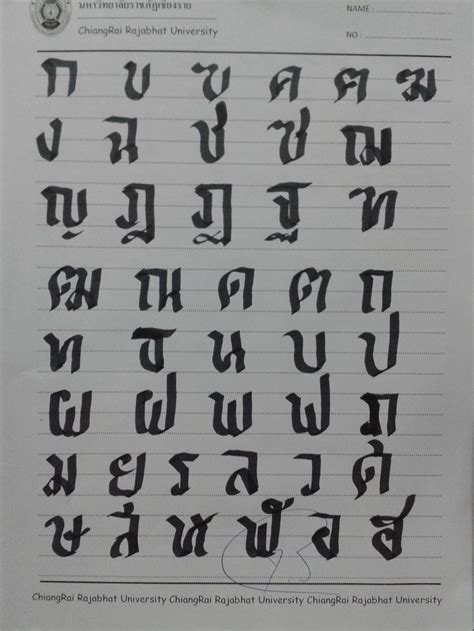 มหาวิทยาลัยราชภัฏเชียงราย
ChiangRai Rajabhat University
NAME :
NO :
ก ข ฃ ค ฅ ฆ
ง ฉ ช ซ ฌ
ญ ฎ ฏ ฐ ฑ
ฒ ณ ด ต ถ
ท ธ น บ ป
ผ ฝ พ ฟ ภ
ม ย ร ล ว ศ
ษ ส ห ฬ อ ฮ
ChiangRai Rajabhat University ChiangRai Rajabhat University ChiangRai Rajabhat University